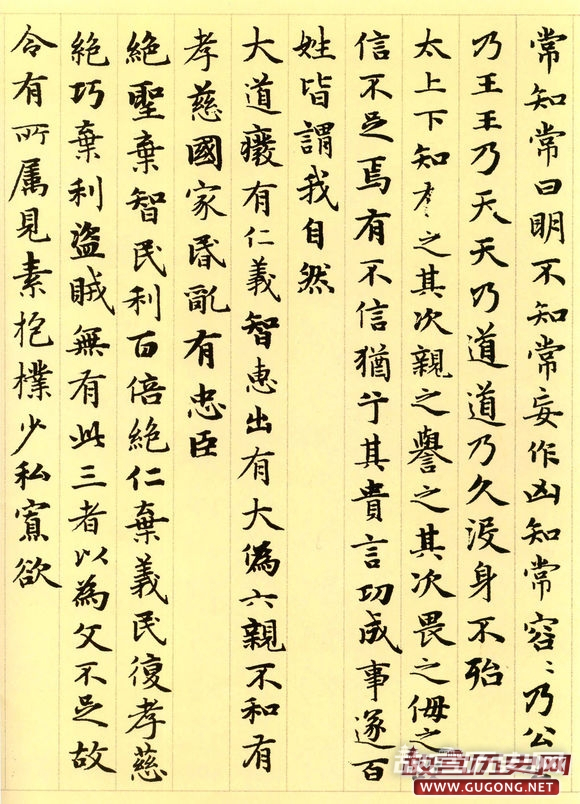 常知常曰明不知常妄作凶知常容〻乃公
乃王王乃天天乃道道乃久沒身不殆
太上下知有之其次親之譽之其次畏之侮之
信不足焉有不信猶兮其貴言功成事遂百
姓皆謂我自然
大道廢有仁義智惠出有大偽六親不和有
孝慈國家昏亂有忠臣
絕聖棄智民利百倍絕仁棄義民復孝慈
絕巧棄利盜賊無有此三者以為文不足故
令有所屬見素抱樸少私寡欲
故宫历史网
WWW.GUGONG.NET